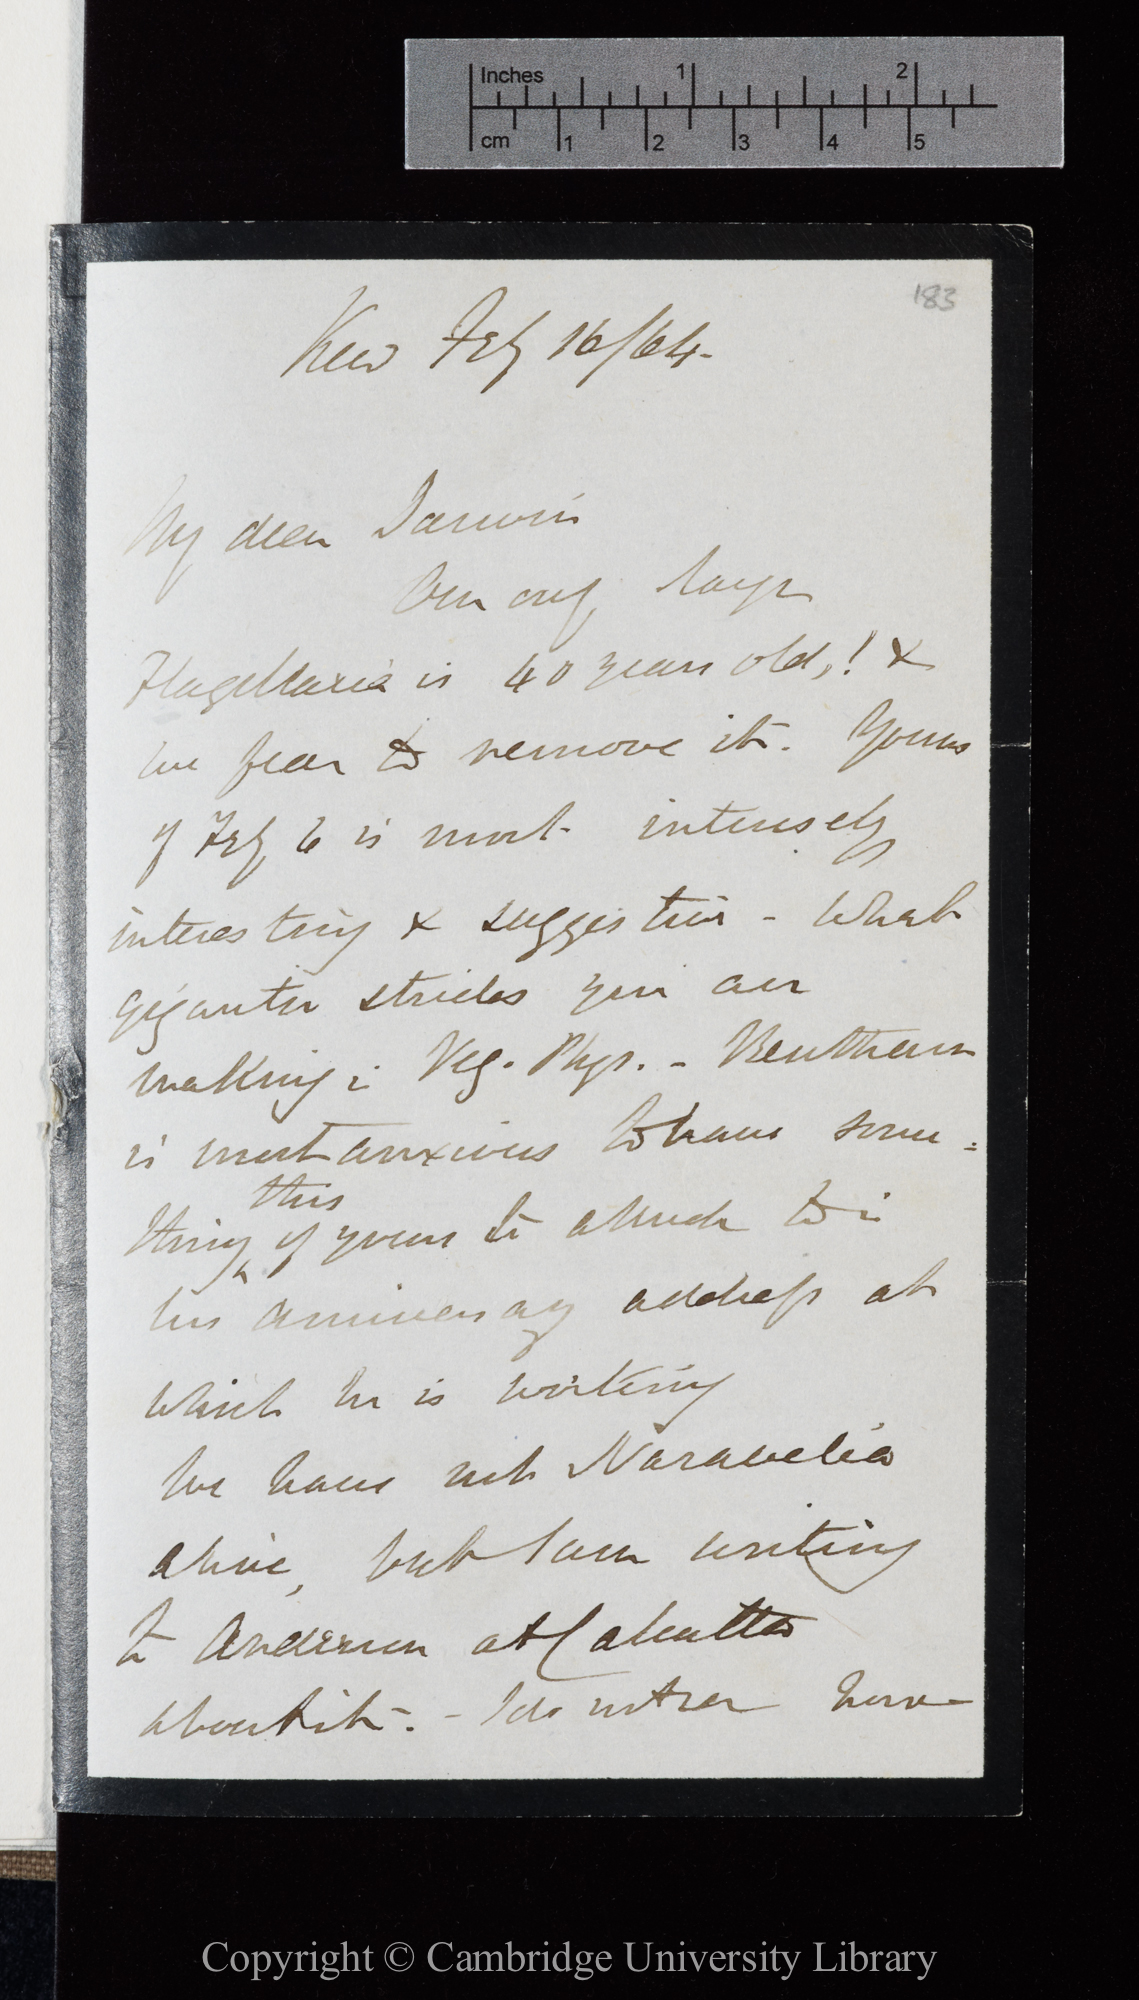 Inches 1 2
cm 1 2 3 4 5
183
Kew Feby 16/64.
My dear Darwin
Our only large
Flagellaria is 40 years old,! &
we fear to remove it. Yours
of Feby 6 is most intensely
interesting & suggestive – What
gigantic strides you are
making in Veg. Phys. – Bentham
is most anxious to have some=
this
thing of yours to allude to in
his anniversary addreſs at
which he is working
We have not Naravelia
alive, but I am writing
to Anderson at Calcutta
about it. – I do not see how
Copyright © Cambridge University Library